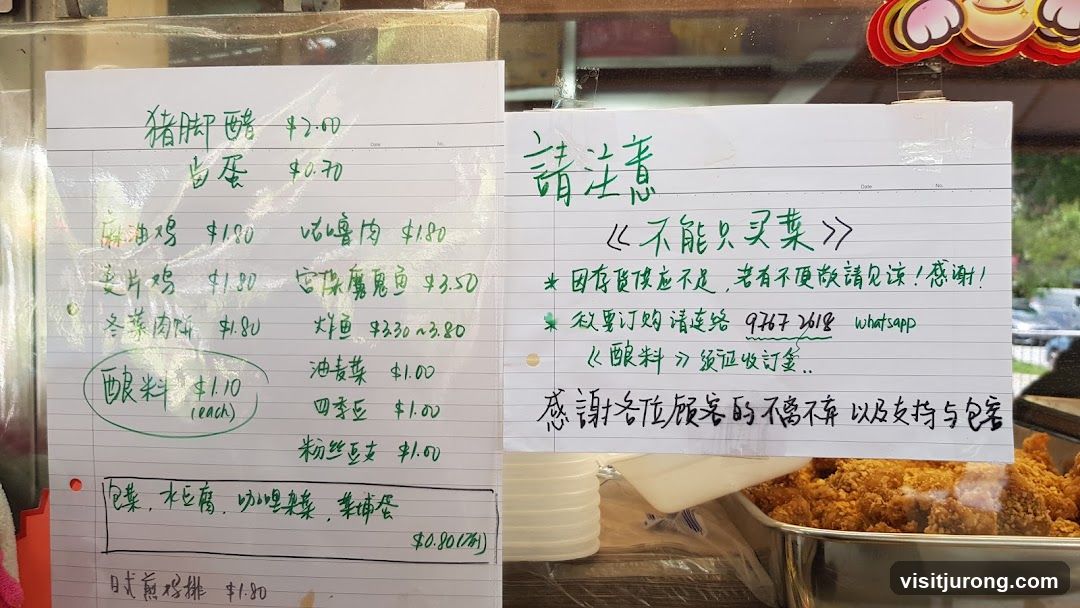 猪脚醋 $2.00
卤蛋 $0.70
麻油鸡 $1.80
咕噜肉 $1.80
姜片鸡 $1.80
宫保魔鬼鱼 $3.50
冬菜肉饼 $1.80
炸鱼 $3.30~3.80
酿料 $1.10
(each)
油麦菜 $1.00
四季豆 $1.00
粉丝豆支 $1.00
包菜, 水豆腐, 咖哩杂菜, 菜埔蛋
$0.80
日式煎 排 $1.80
Date No.
請注意
Date No.
《不能只买菜》
* 因存货供应不足, 若有不便敬請见谅! 感谢!
* 订购请连络 9767 2618 whatsapp
《酿料》须征收订金..
感謝各位顾客的不离不弃以及支持与包容
visitjurong.com